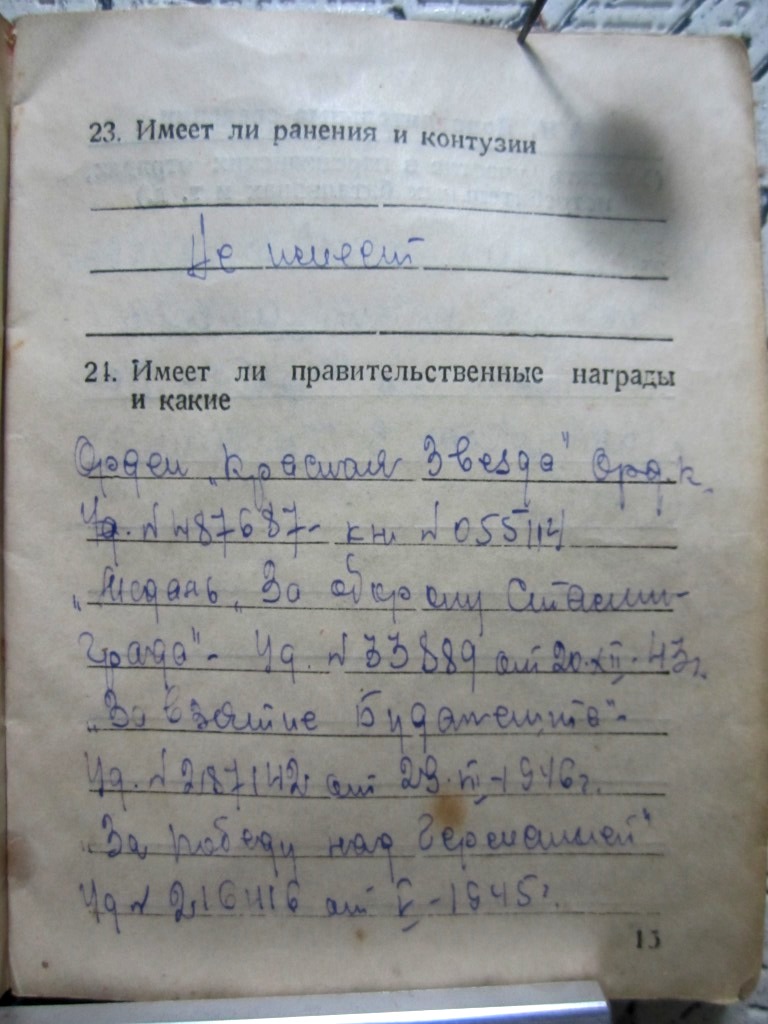 23. Имеет ли ранения и контузии
Не имеет
24. Имеет ли правительственные награды
и какие
Орден „Красная Звезда" Орд.к.
Уд. № 487687- кн. № 055114
„Медаль „За оборону Сталин-
града"- Уд. № 33889 от 20.XII-43г.
„За взятие Будапешта"-
Уд. № 287142 от 29.VII-1946г.
„За победу над Германией"
Уд № 216416 от V-1945г.
13